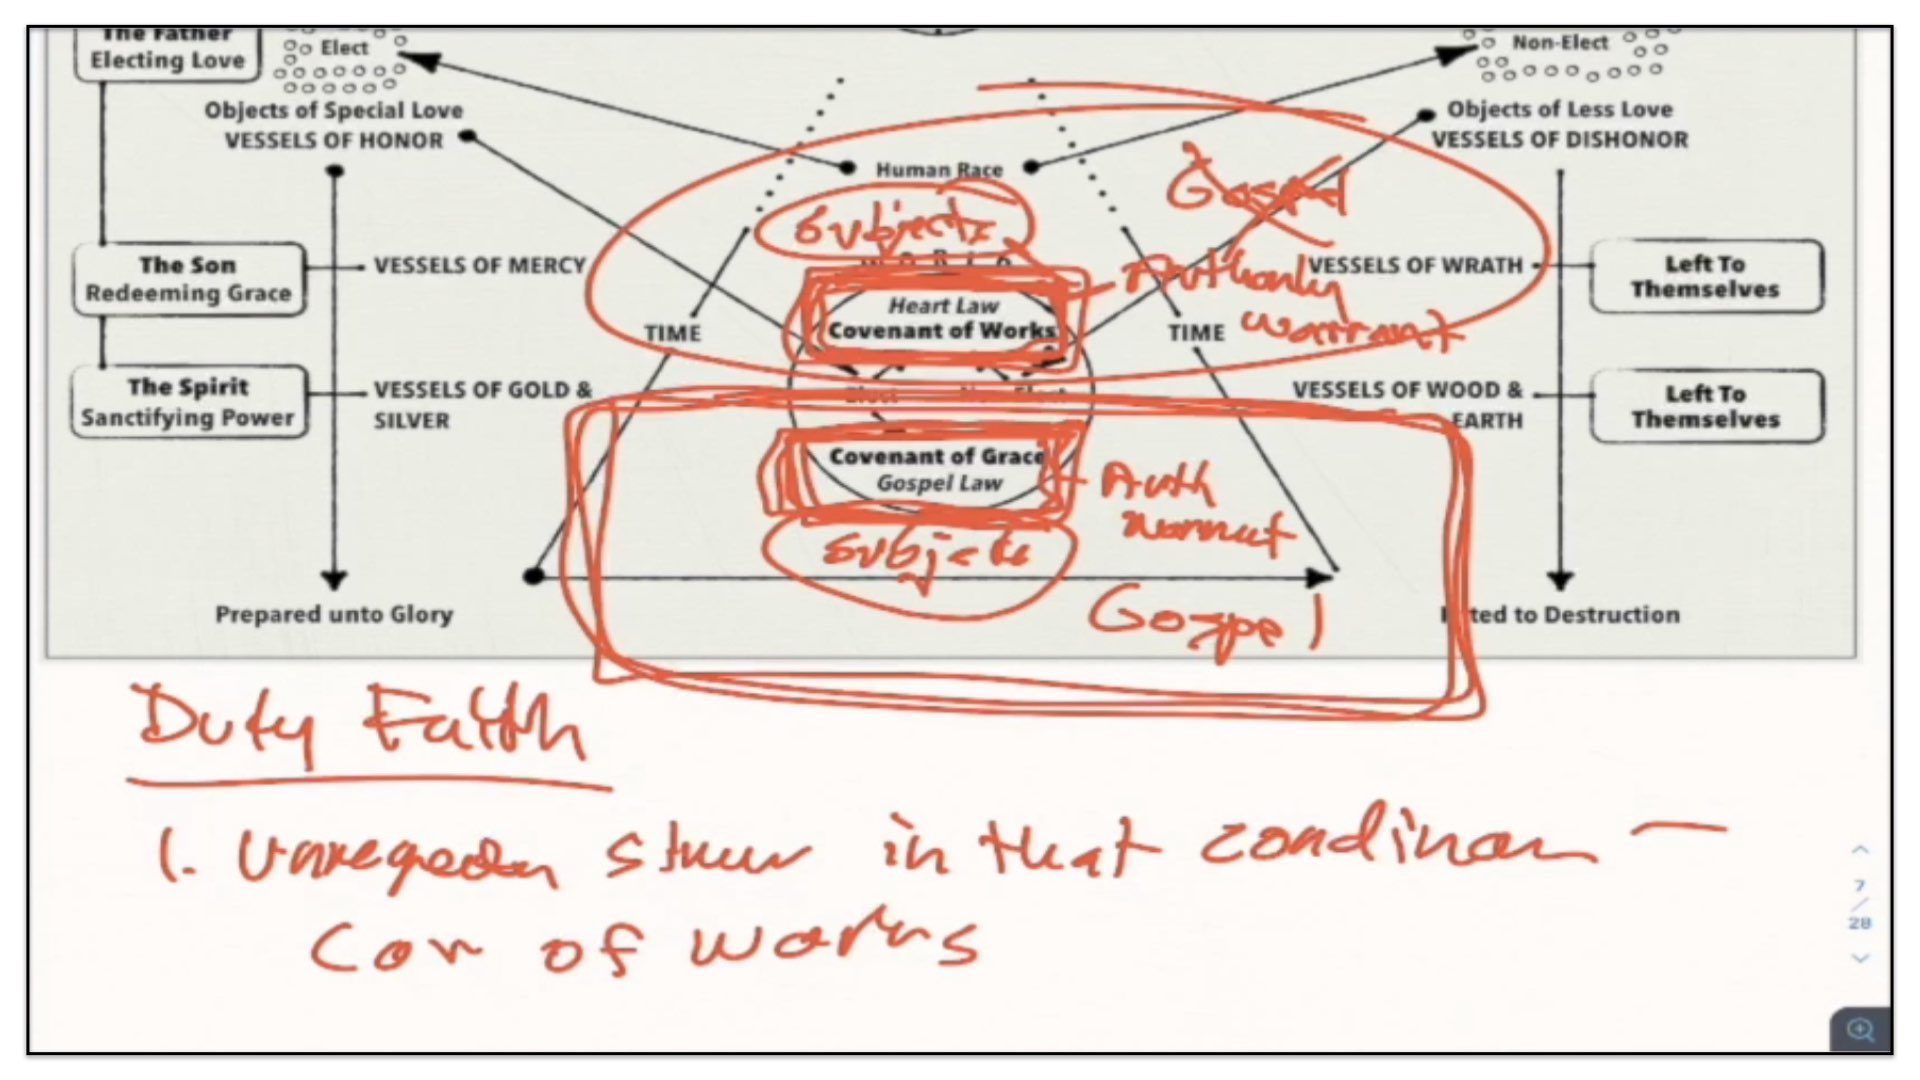 The Father
Electing Love
Elect
Objects of Special Love
VESSELS OF HONOR
Non-Elect
Objects of Less Love
VESSELS OF DISHONOR
Human Race
Subjects
Gospel
Authority
warrant
The Son
Redeeming Grace
VESSELS OF MERCY
WORLD
VESSELS OF WRATH
Left To
Themselves
TIME
Heart Law
Covenant of Works
TIME
The Spirit
Sanctifying Power
VESSELS OF GOLD &
SILVER
Elect
Non-Elect
VESSELS OF WOOD &
EARTH
Left To
Themselves
Covenant of Grace
Gospel Law
Auth
Subjects
Gospel
Prepared unto Glory
to Destruction
Duty Faith
1. in that
Cov of works
7
/
28